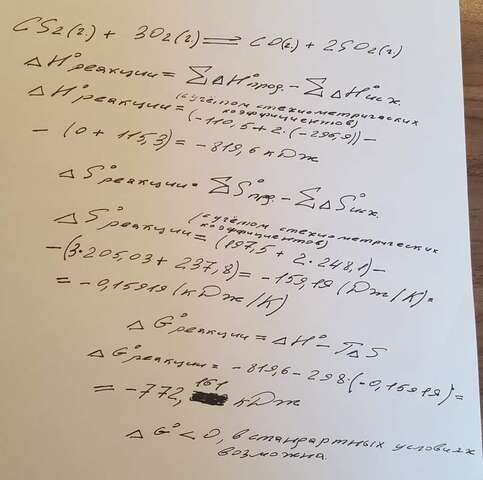 CS2(г.) + 3O2(г.) ⇌ CO(г.) + 2SO2(г.)
ΔH°реакции = ΣΔH°прод. − ΣΔH°исх.
(с учётом стехиометрических
коэффициентов)
ΔH°реакции = (−110,5 + 2·(−296,9)) −
− (0 + 115,3) = −819,6 кДж
ΔS°реакции = ΣS°пр. − ΣΔS°исх.
(с учётом стехиометрических
коэффициентов)
ΔS°реакции = (197,5 + 2·248,1) −
−(3·205,03 + 237,8) = −159,19 (Дж/К) =
= −0,15919 (кДж/К)
ΔG°реакции = ΔH° − TΔS
ΔG°реакции = −819,6 − 298·(−0,15919) =
= −772,161 кДж
ΔG° < 0, в стандартных условиях
возможна.